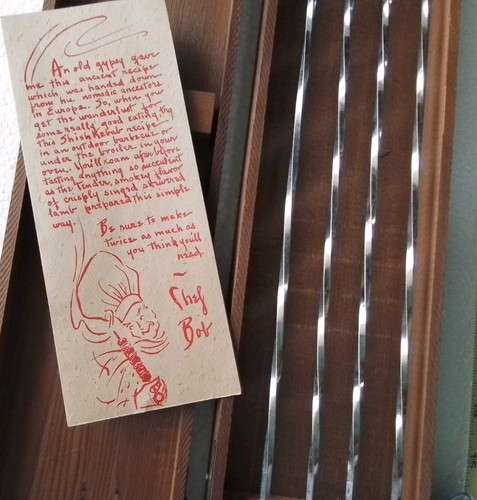 An old gypsy gave
me this ancient recipe
which was handed down
from his nomadic ancestors
in Europe. So, when you
get the wanderlust for
some really good eating, try
this Shish Kebab recipe
in an outdoor barbecue or
under the broiler in your
oven. You'll roam afar before
tasting anything so succulent
as the tender, smokey flavor
of crisply singed skewered
lamb prepared this simple
way.
Be sure to make
twice as much as
you think you'll
need.
~
Chef
Bob